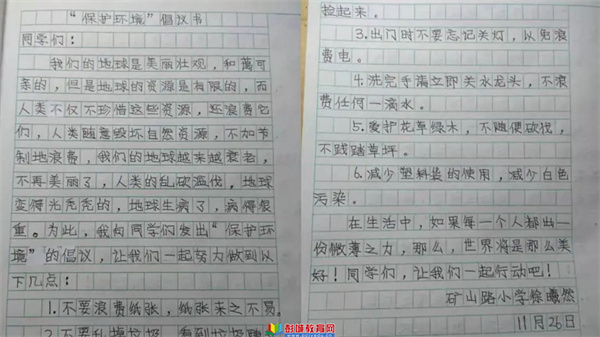 “保护环境”倡议书
同学们：
我们的地球是美丽壮观，和蔼可
亲的，但是地球的资源是有限的，而
人类不仅不珍惜这些资源，还浪费它
们，人类随意毁坏自然资源，不加节
制地浪费，我们的地球越来越衰老，
不再美丽了，人类的乱砍滥伐，地球
变得光秃秃的，地球生病了，病得很
重。为此，我向同学们发出“保护环
境”的倡议，让我们一起努力做到以
下几点：
1.不要浪费纸张，纸张来之不易。
2.不要乱扔垃圾，看到垃圾随手
捡起来。
3.出门时不要忘记关灯，以免浪
费电。
4.洗完手请立即关水龙头，不浪
费任何一滴水。
5.爱护花草绿木，不随便砍伐，
不践踏草坪。
6.减少塑料袋的使用，减少白色
污染。
在生活中，如果每一个人都出一
份微薄之力，那么，世界将是那么美
好！同学们，让我们一起行动吧！
矿山路小学徐曦然
11月26日
彭城教育网